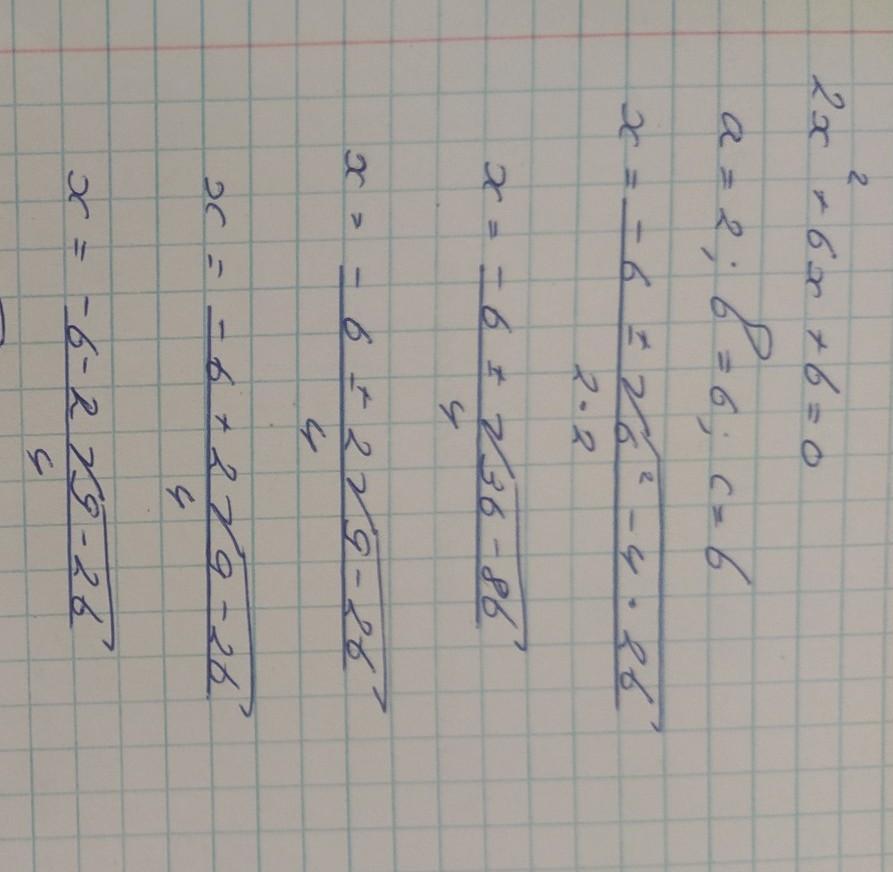 2x² + 6x + b = 0
a = 2; b = 6; c = b
x = (-6 ± √(6² - 4 · 2b)) / (2 · 2)
x = (-6 ± √(36 - 8b)) / 4
x = (-6 ± 2√(9 - 2b)) / 4
x = (-6 + 2√(9 - 2b)) / 4
x = (-6 - 2√(9 - 2b)) / 4